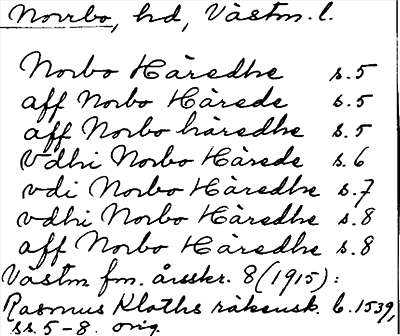 Norrbo, hd, Västm. l.
Norbo Häredhe s. 5
aff Norbo Härede s. 5
aff Norbo häredhe s. 5
vdhi Norbo Härede s. 6
vdi Norbo Häredhe s. 7
vdhi Norbo Häredhe s. 8
aff Norbo Häredhe s. 8
Västm fm. årsskr. 8 (1915):
Rasmus Kloths räkensk. b. 1539,
ss. 5-8. orig.